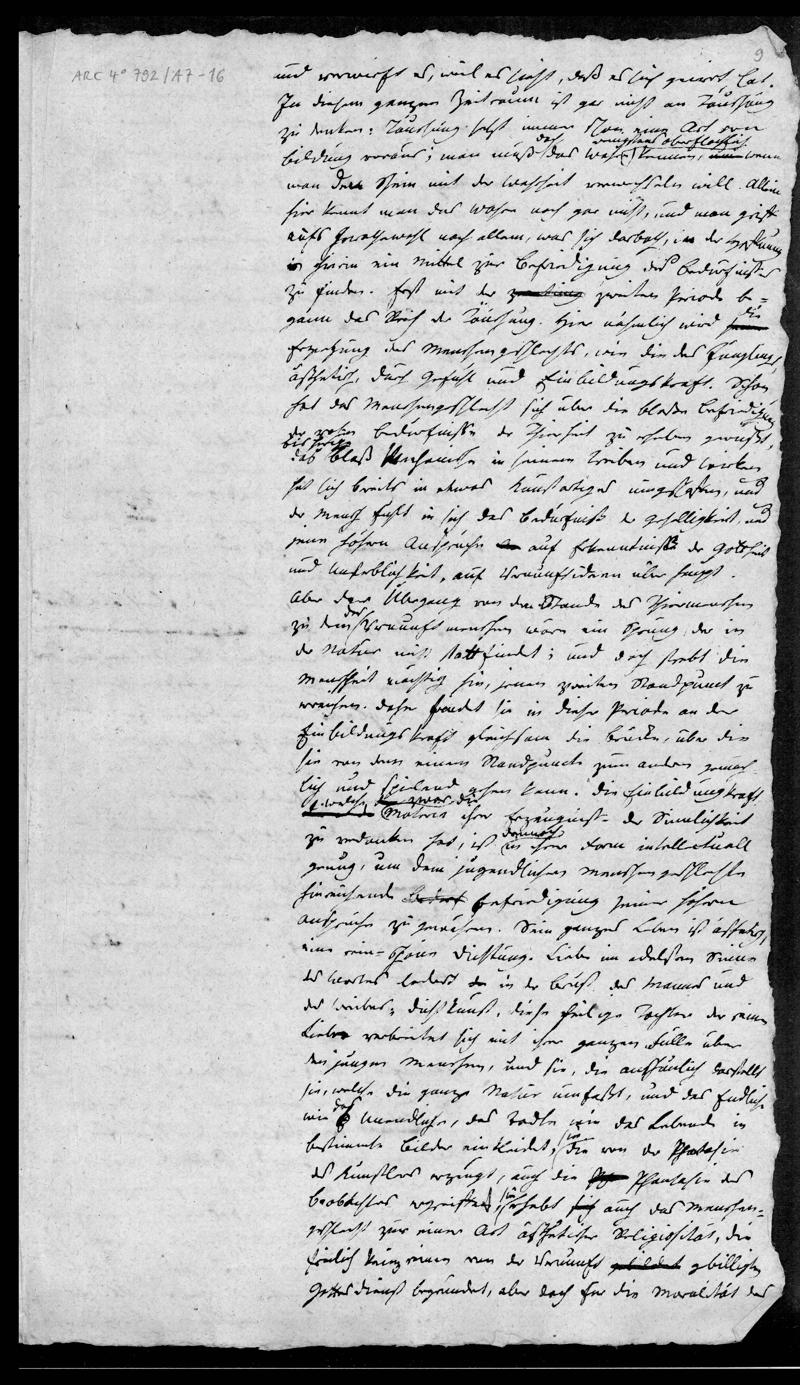 9
ARC 4° 792/A7-16
und verwirft es, weil es sieht, daß es sich geirrt hat.
In diesem ganzen Zeitraum ist gar nicht an Täuschung
zu denken: Täuschung setzt immer schon eine Art von
doch wenigstens oberflächlich
bildung voraus; man muß das Wahre kennen, wenn
man den Schein mit der Wahrheit verwechseln will. Allein
hier kennt man das Wahre noch gar nicht, und man greift
aufs Gerathewohl nach allem, was sich darbeut, in der Hoffnung
hierin ein Mittel zur Befriedigung des Bedürfnisses
zu finden. Erst mit der zweiten Periode be-
die
gann das Reich der Täuschung. Hier nähmlich wird
Erziehung des Menschengeschlechts, wie die des Jünglings,
ästhetisch, durch Gefühl und Einbildungskraft. Schon
hat das Menschengeschlecht sich über die bloße Befriedigung
der rohen Bedürfnisse der Thierheit zu erheben gewußt,
bisherige
das bloß Mechanische in seinem Treiben und Wirken
hat sich bereits in etwas Kunstartiges umgeschaffen, und
der Mensch fühlt in sich das Bedürfniß der Geselligkeit, und
jene höhern Ansprüche auf Erkenntniß der Gottheit
und Unsterblichkeit, auf Vernunftideen über haupt.
Aber der Übergang von dem Stande des Thiermenschen
des
zu dem Vernunftmenschen wäre ein Sprung, der in
der Natur nicht statt findet; und doch strebt die
Menschheit mächtig hin, jenen zweiten Standpunct zu
erreichen. Daher findet sie in dieser Periode an der
Einbildungskraft gleichsam die Brücke, über die
sie von dem einen Standpuncte zum andern gemäch
lich und spielend gehen kann. Die Einbildungskraft
welche zwar die
Materie ihrer Erzeugnisse der Sinnlichkeit
dennoch
zu verdanken hat, ist in ihrer Form intellectuell
genug, um dem jugendlichen Menschengeschlechte
hinreichende Befriedigung seiner höhern
Ansprüche zu gewähren. Sein ganzes Leben ist ästhetisch,
eine rein-schöne Dichtung. Liebe im edelsten Sinne
des Wortes lodert in der Brust des Mannes und
des Weibes; Dichtkunst, diese heilige Tochter der reinen
Liebe verbreitet sich mit ihrer ganzen Fülle über
den jungen Menschen, und sie, die anschaulich darstellt
sie, welche die ganze Natur umfaßt, und das Endliche
das
wie Unendliche, das Todte wie das Lebende in
bestimmte Bilder einkleidet, sie die von der Phantasie
des Künstlers erzeugt, auch die Phantasie des
sie
Beobachters ergreift, erhebt auch das Menschen-
geschlecht zur einer Art ästhetischer Religiosität, die
freilich keinen von der Vernunft gebilligten
Gottesdienst begründet, aber doch für die Moralität des